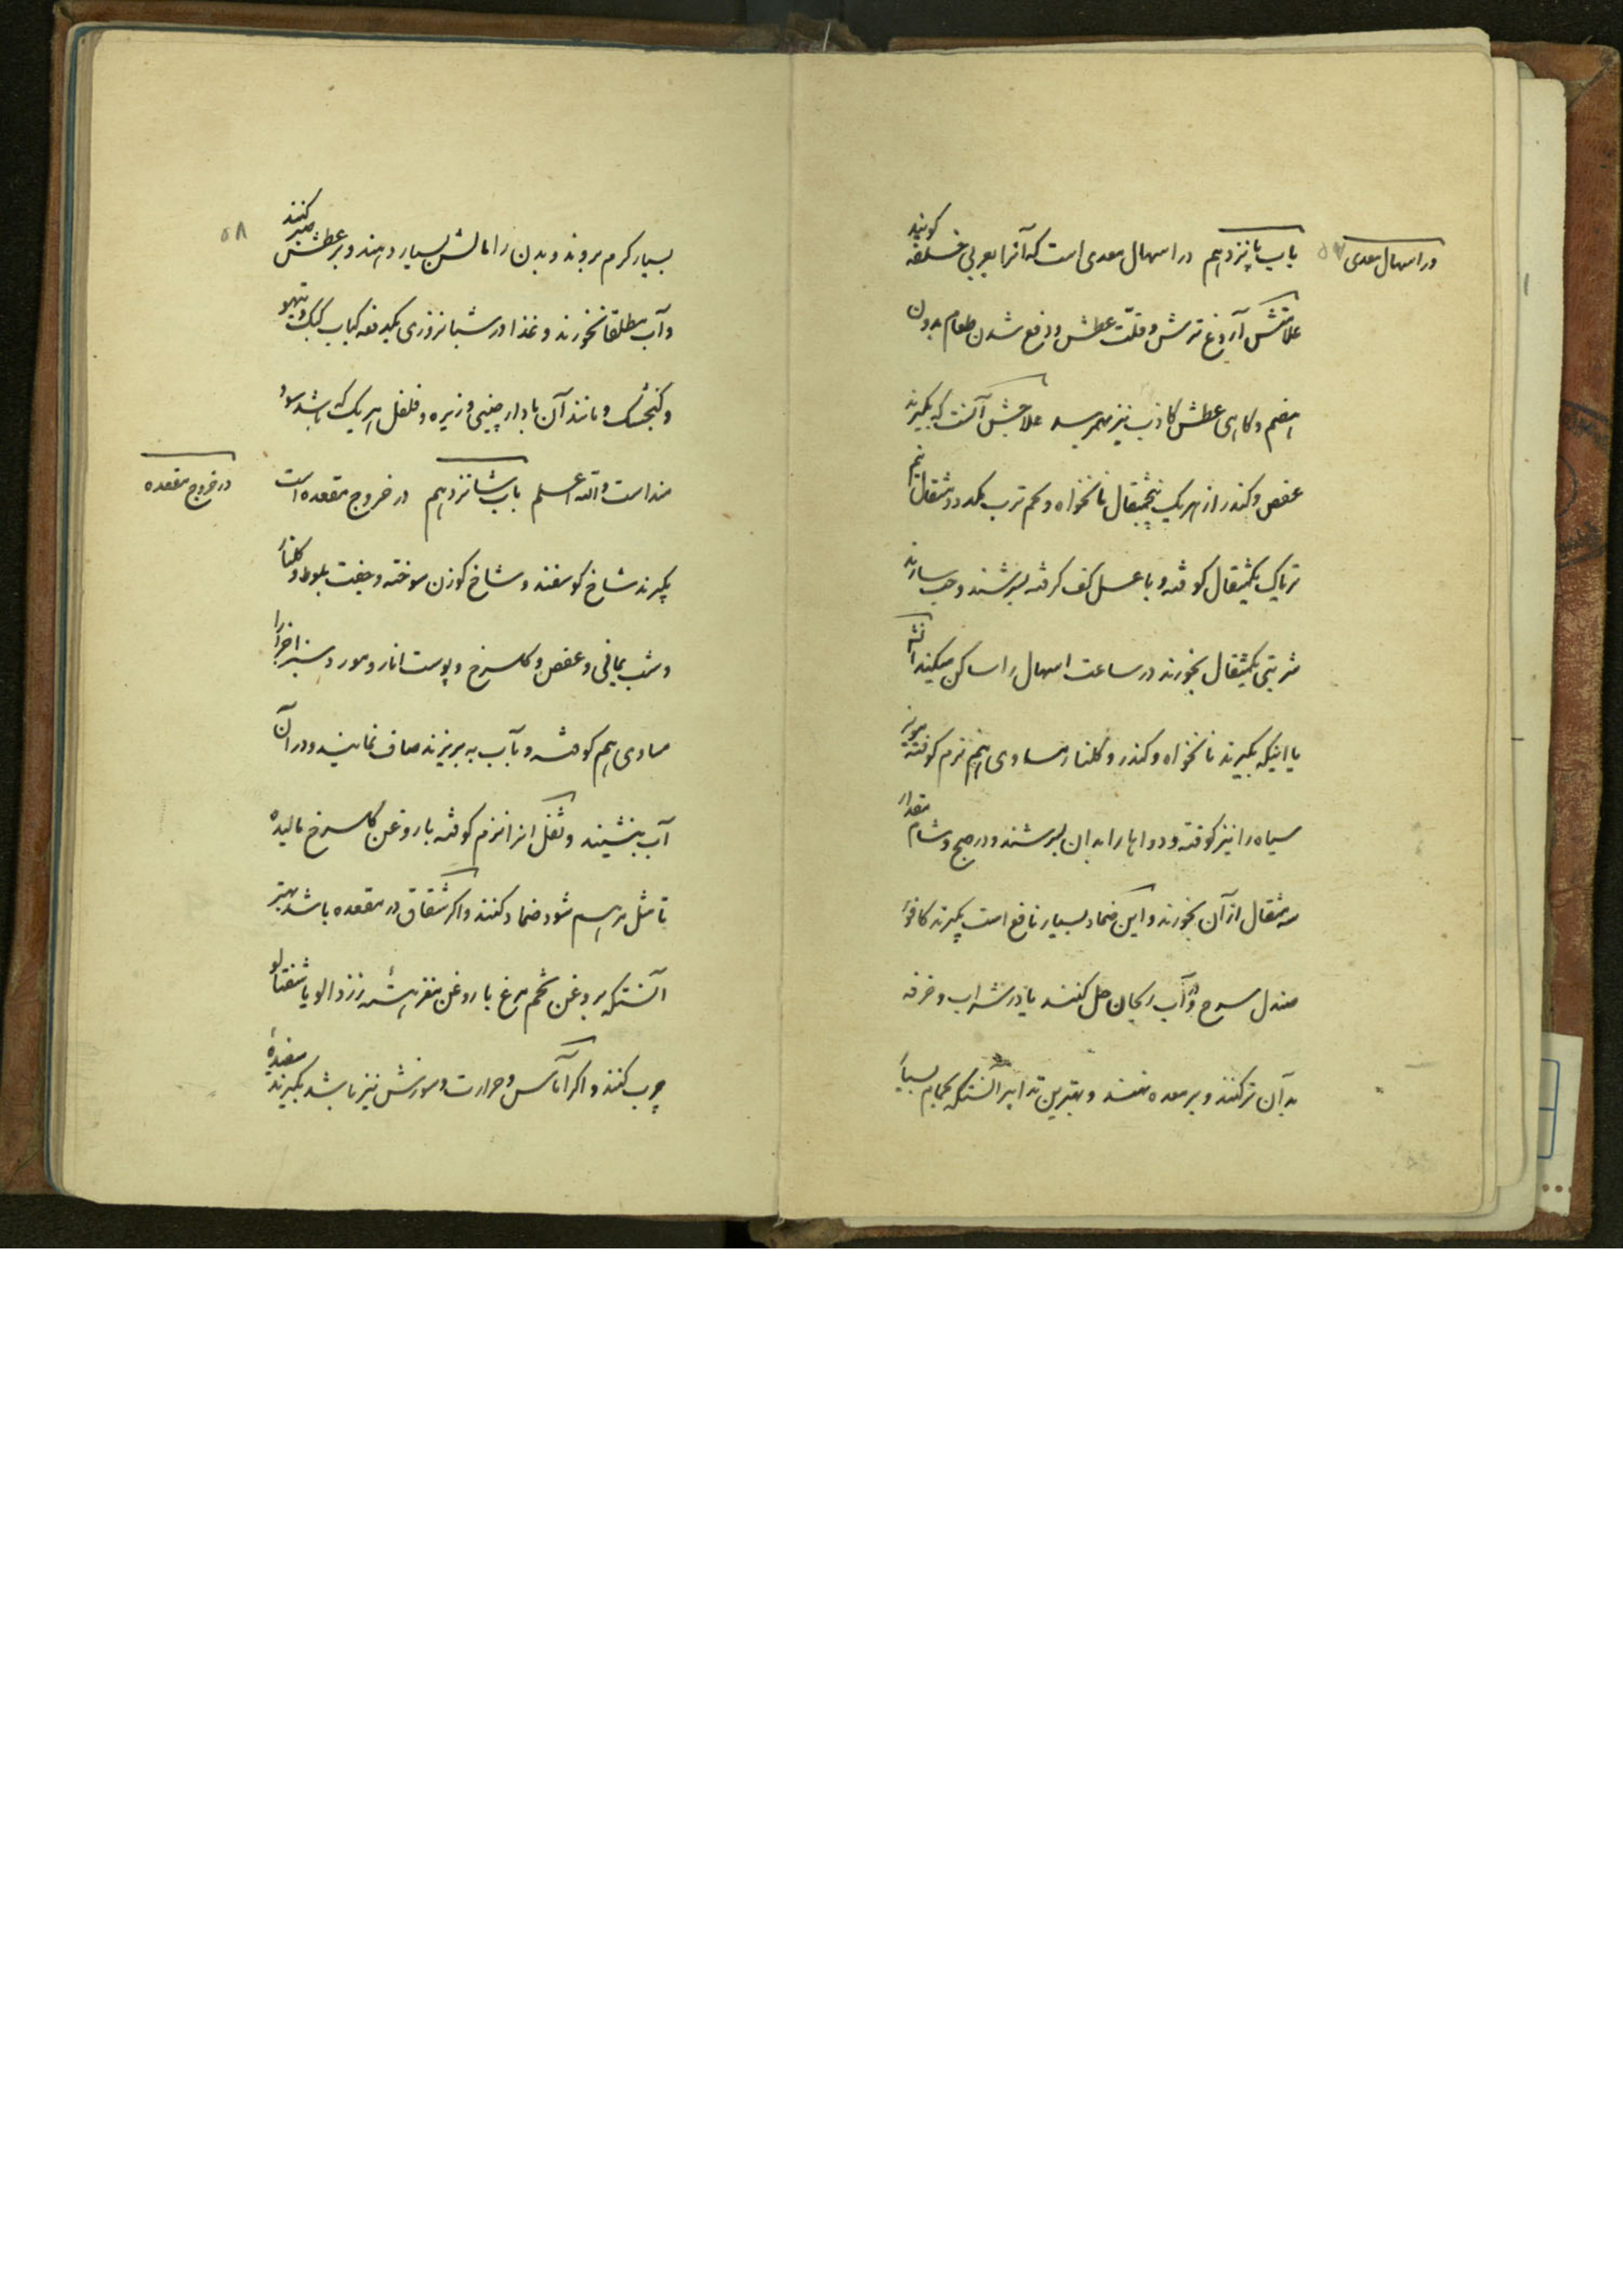 در اسهال معدی
۵۷
باب پانزدهم در اسهال معدی است که آنرا بعربی خلفه کویند
علامتش آروغ ترش و قلّت عطش و دفع شدن طعام بدون
هضم و کاهی عطش کاذب نیز بهمرسد علاجش آنست که بکیرند
عفص و کندر از هر یک پنجمثقال نانخواه و تخم ترب یکدو مثقال نیم
تریاک یکمثقال کوفته و با عسل کف کرفته بسرشند و حب سازند
شربتی یکمثقال بخورند در ساعت اسهال را ساکن میکند انشا
یا اینکه بکیرند نانخواه و کندر و کلنار مساوی هم نرم کوفته مویز
سیاه را نیز کوفته و دواها را بدان بسرشند و در صبح و شام مقدار
سه مثقال از آن بخورند و این ضماد بسیار نافع است بکیرند کافور
صندل سرخ و در آب ریحان حل کنند یا در شراب و خرقه
بدآن تر کنند و بر معده نهند و بهترین تدابیر آنستکه بحمام بسیار
۵۸
بسیار کرم بروند و بدن را مالش بسیار دهند و بر عطش صبر کنند
و آب مطلقا نخورند و غذا در شبانروزی یکدفعه کباب کبک و تیهو
و کنجشک و مانند آن با دارچینی و زیره و فلفل هر یک که باشد سود
منداست والله اعلم باب شانزدهم در خروج مقعده است
در خروج مقعده
بکیرند شاخ کوسفند و شاخ کوزن سوخته و جفت بلوط و کلنار
و شب یمانی و عفص و کلسرخ و پوست انار و مورد سبز اجزا را
مساوی هم کوفته و بآب به بریزند صاف نمایند و در آن
آب بنشینند و ثفل انرا نرم کوفته با روغن کلسرخ مالیده
تا مثل مرهم شود ضماد کنند و اکر شقاق در مقعده باشد بهتر
آنستکه بروغن تخم مرغ یا روغن مغز هسته زردالو یا شفتالو
چرب کنند و اکر آماس و حرارت و سوزش نیز باشد بکیرند سفیدهٔ